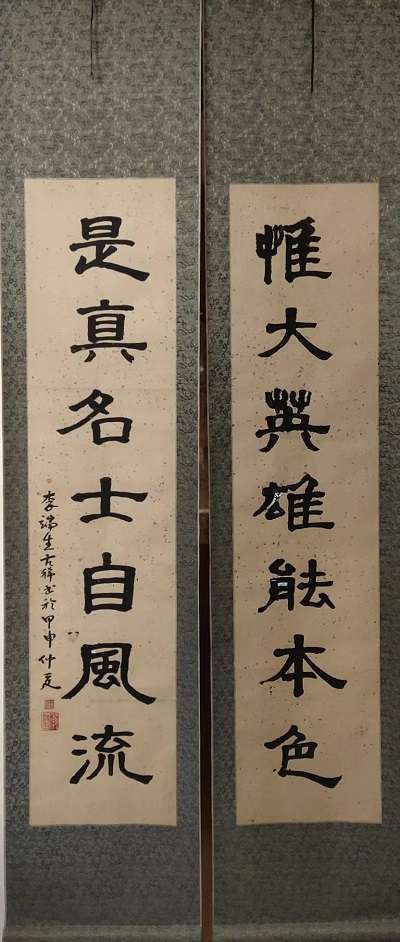 惟大英雄能本色
是真名士自風流
李瑞生右衽书於甲申仲夏